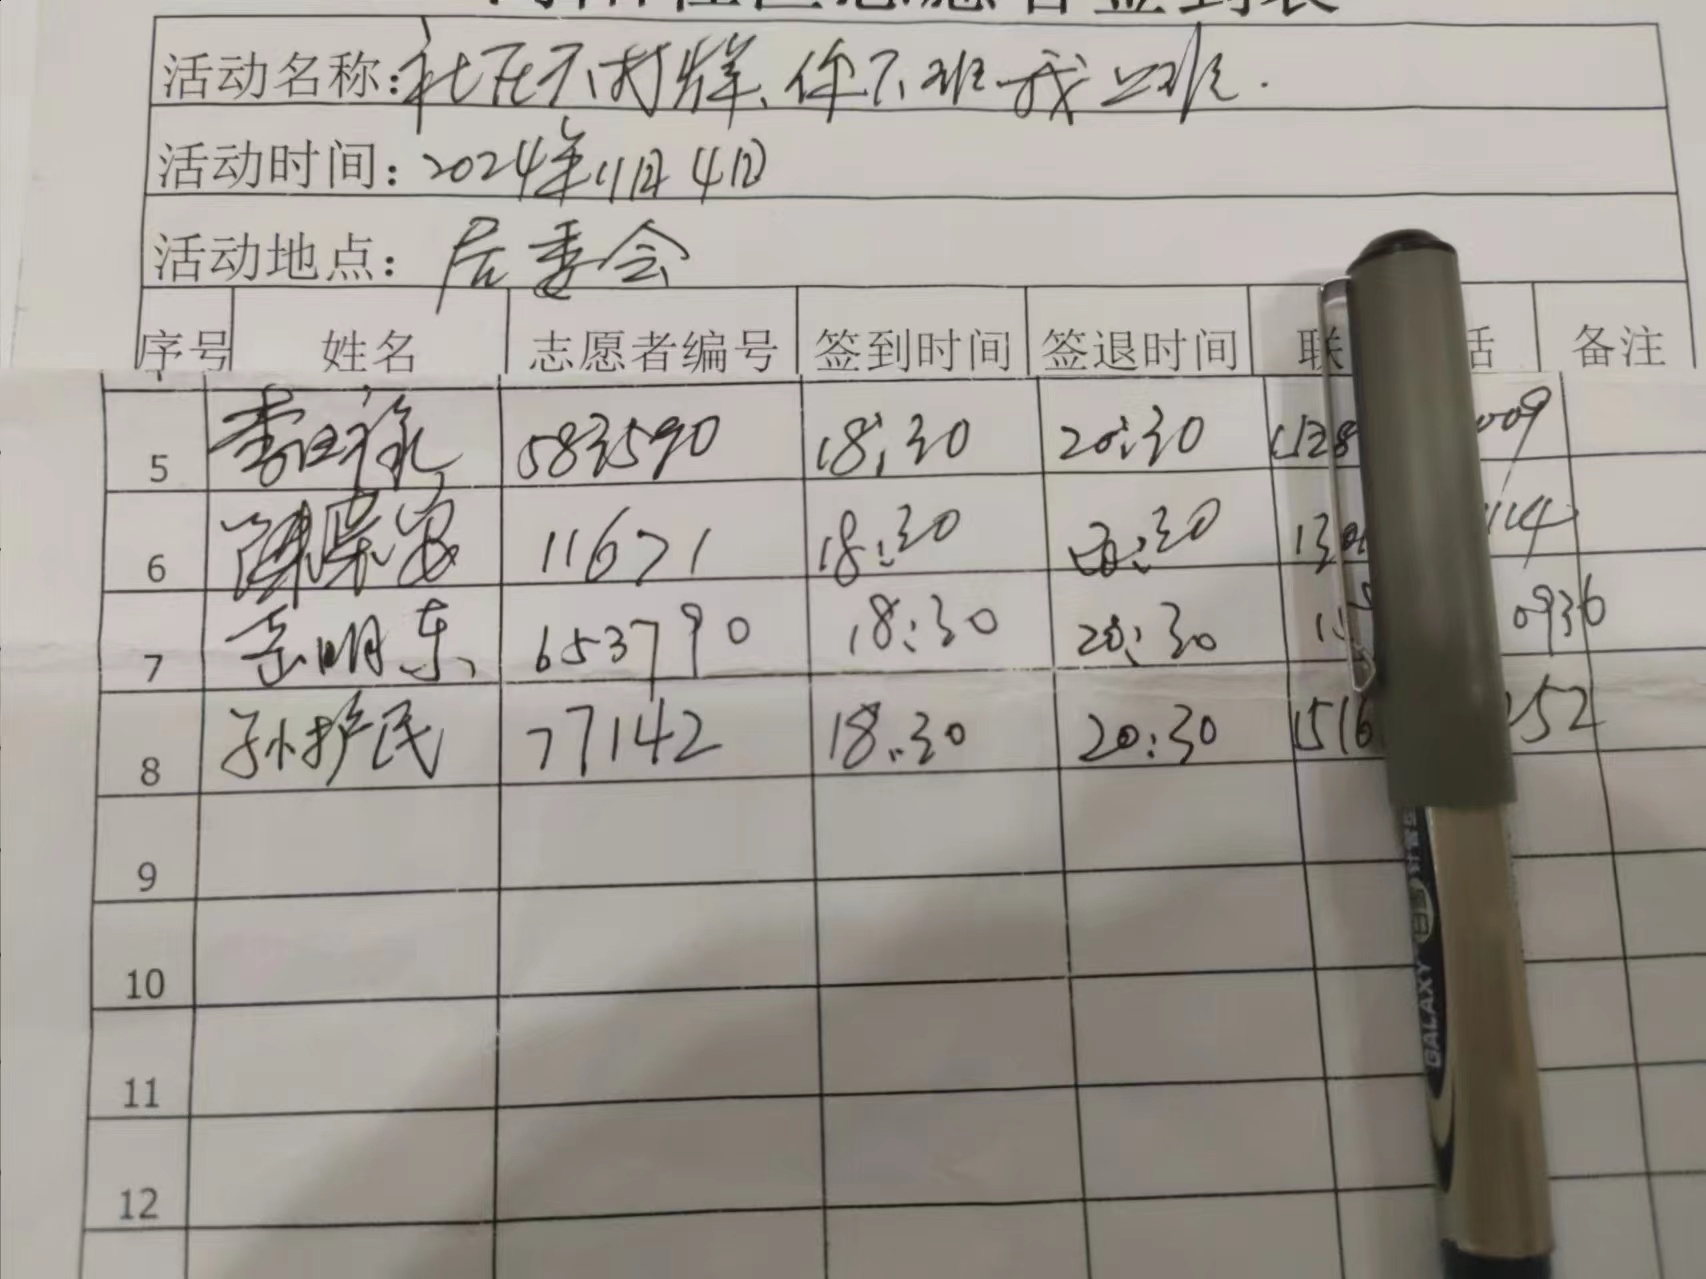 社区志愿者签到表
活动名称：社区不打烊、你下班我上班.
活动时间：2024年11月4日
活动地点：居委会
序号 姓名 志愿者编号 签到时间 签退时间 联 话 备注
5 583590 18:30 20:30 009
6 11671 18:30 20:30 114
7 岳明东 653790 18:30 20:30 0936
8 孙护民 77142 18:30 20:30 1516 252
9
10
11
12
GALAXY